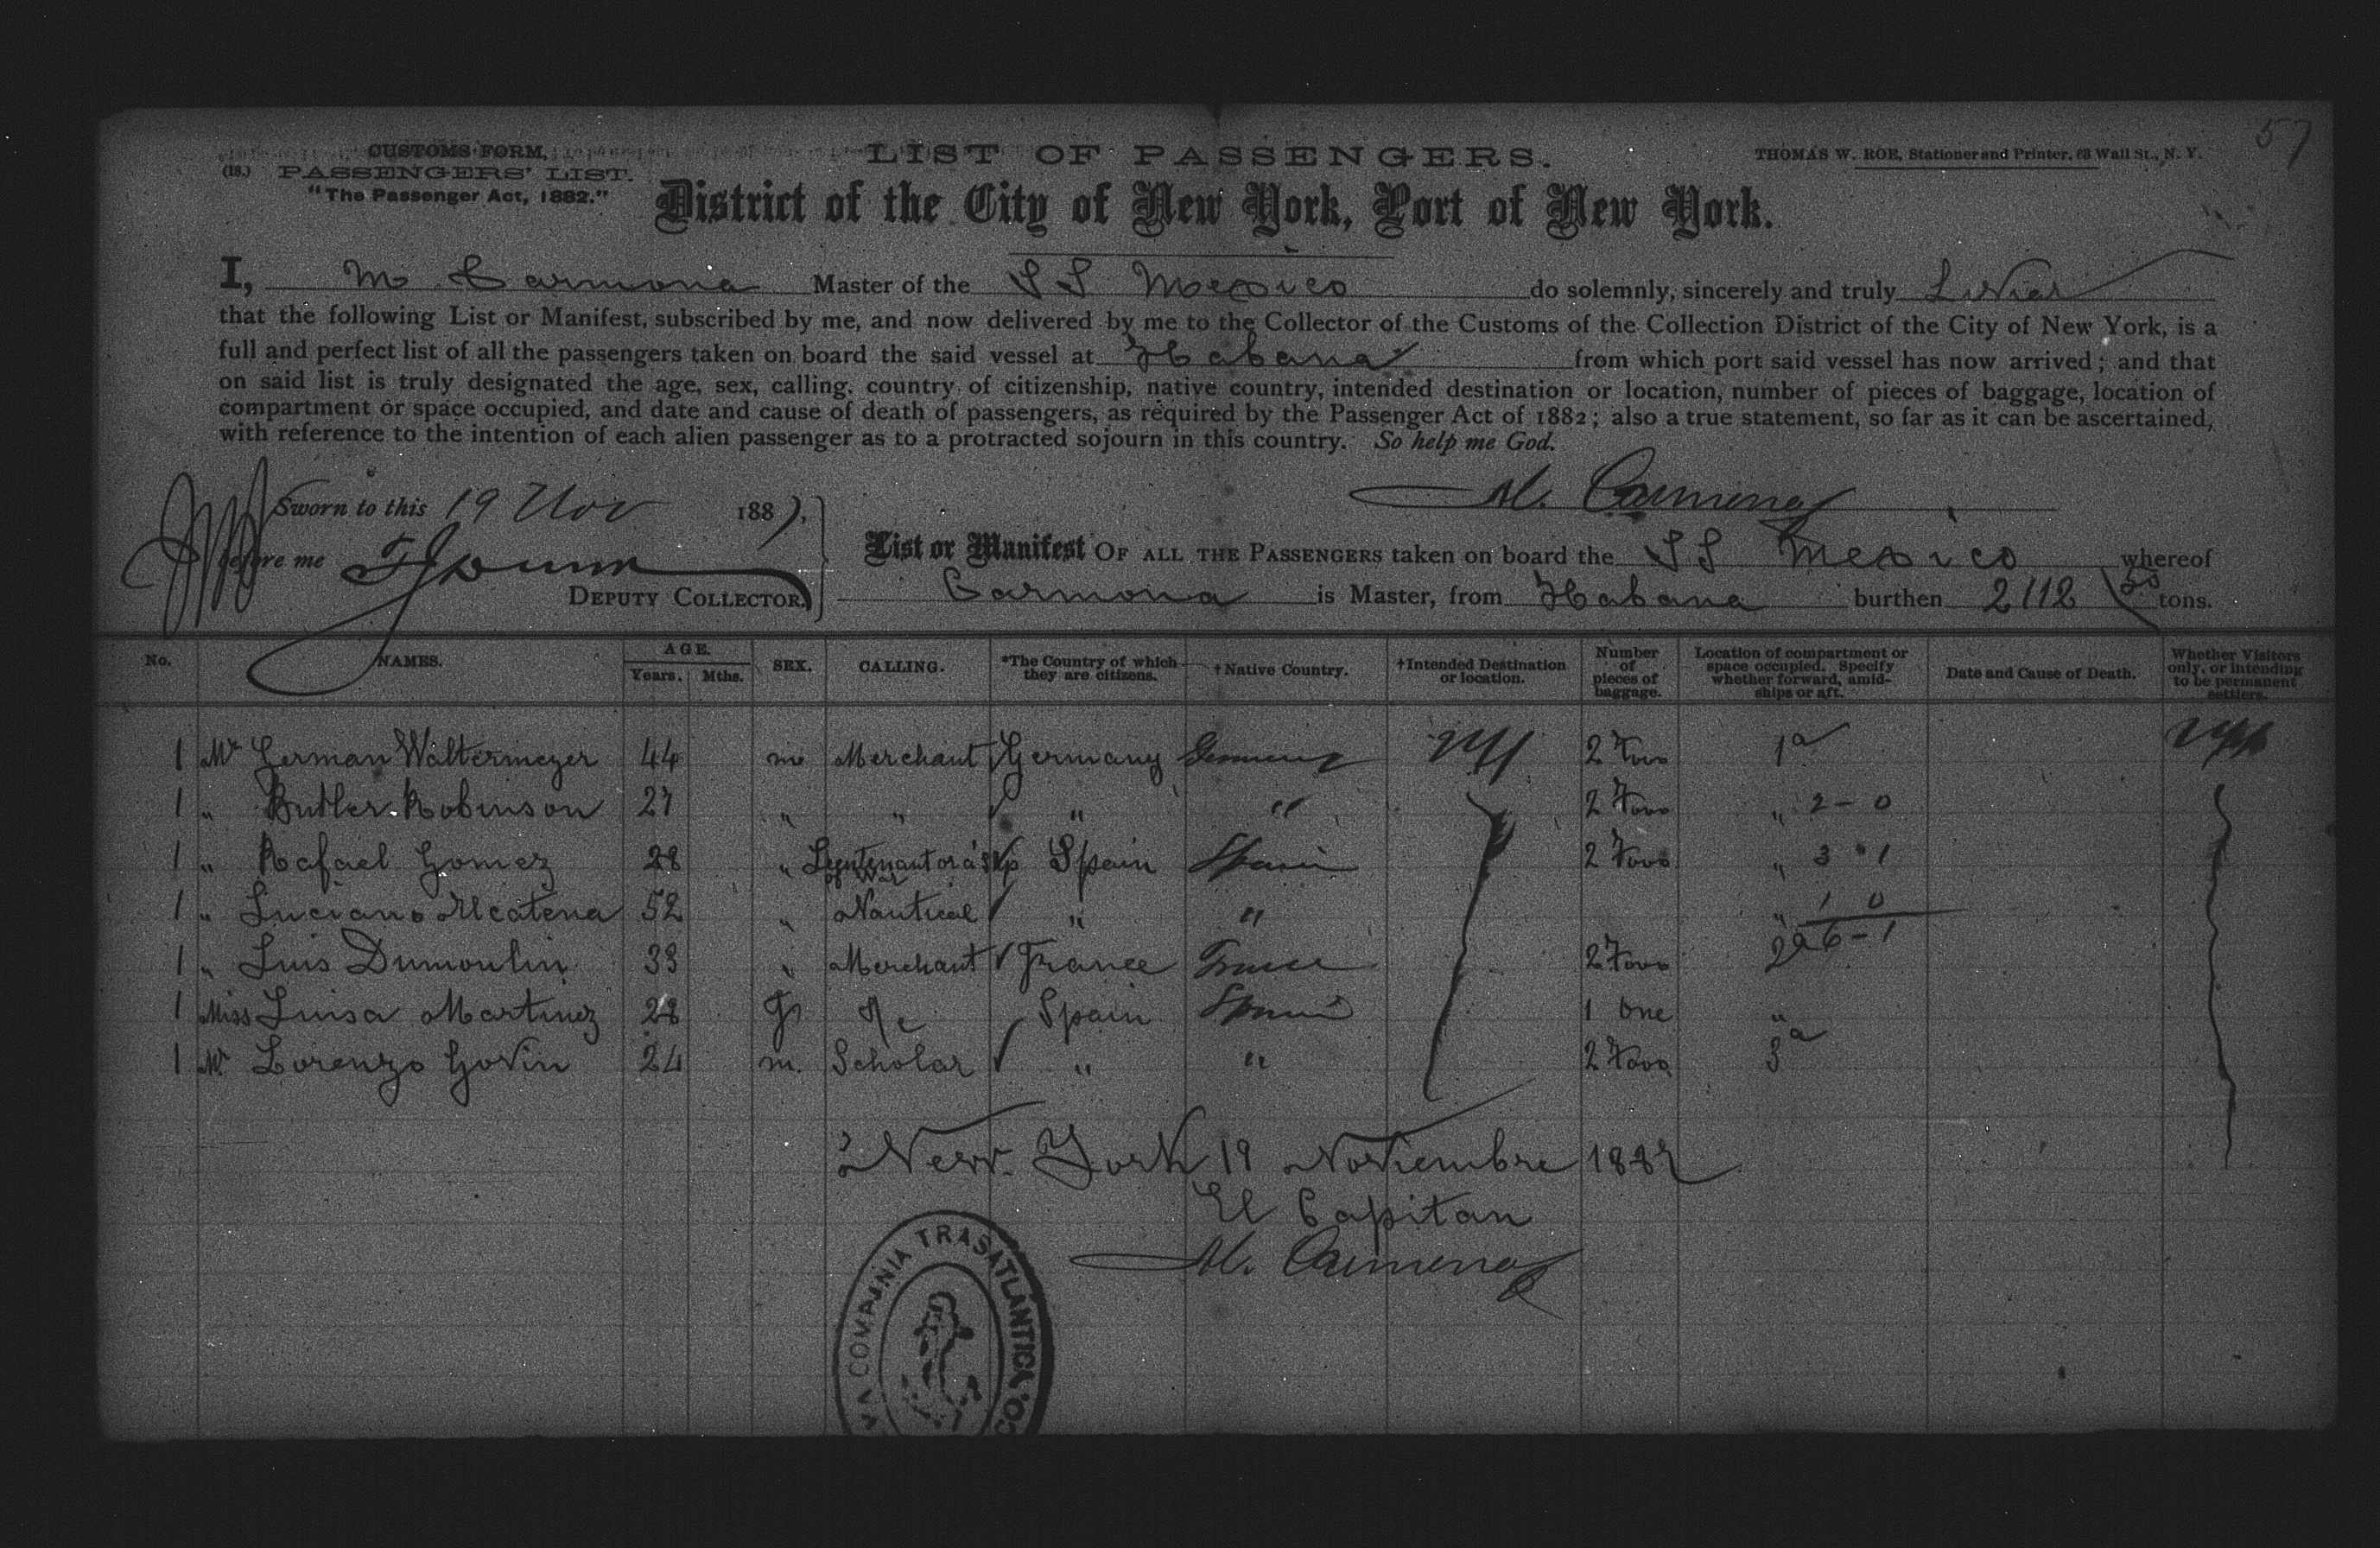 57
CUSTOMS FORM,
(18.) PASSENGERS' LIST.
"The Passenger Act, 1882."
LIST OF PASSENGERS.
THOMAS W. ROE, Stationer and Printer, 68 Wall St., N. Y.
District of the City of New York, Port of New York.
I, M Carmona Master of the SS Mexico do solemnly, sincerely and truly
that the following List or Manifest, subscribed by me, and now delivered by me to the Collector of the Customs of the Collection District of the City of New York, is a
full and perfect list of all the passengers taken on board the said vessel at Habana from which port said vessel has now arrived; and that
on said list is truly designated the age, sex, calling, country of citizenship, native country, intended destination or location, number of pieces of baggage, location of
compartment or space occupied, and date and cause of death of passengers, as required by the Passenger Act of 1882; also a true statement, so far as it can be ascertained,
with reference to the intention of each alien passenger as to a protracted sojourn in this country. So help me God.
M. Carmona
Sworn to this 19 Nov 1887,
before me
DEPUTY COLLECTOR.
List or Manifest OF ALL THE PASSENGERS taken on board the SS Mexico whereof
Carmona is Master, from Habana burthen 2112 tons.
No. NAMES. AGE. Years. Mths. SEX. CALLING. *The Country of which they are citizens. †Native Country. †Intended Destination or location. Number of pieces of baggage. Location of compartment or space occupied. Specify whether forward, amidships or aft. Date and Cause of Death. Whether Visitors only, or intending to be permanent settlers.
1 Mr German Waltermezer 44 m Merchant Germany Germany NY 2 Two 1a
1 " Butler Robinson 27 " " " " 2 Two " 2-0
1 " Rafael Gomez 28 " Spain Spain 2 Two " 3 1
1 " Luciano Meatena 52 " Nautical " " " 1 0
1 " Luis Dumoulin 33 " Merchant France France 2 Two 2a 6-1
1 Miss Luisa Martinez 28 Spain Spain 1 One "
1 Mr Lorenzo Govin 24 m. Scholar " " 2 Two 3a
New York 19 Noviembre 1887
El Capitan
M. Carmona
COMPAÑIA TRASATLANTICA